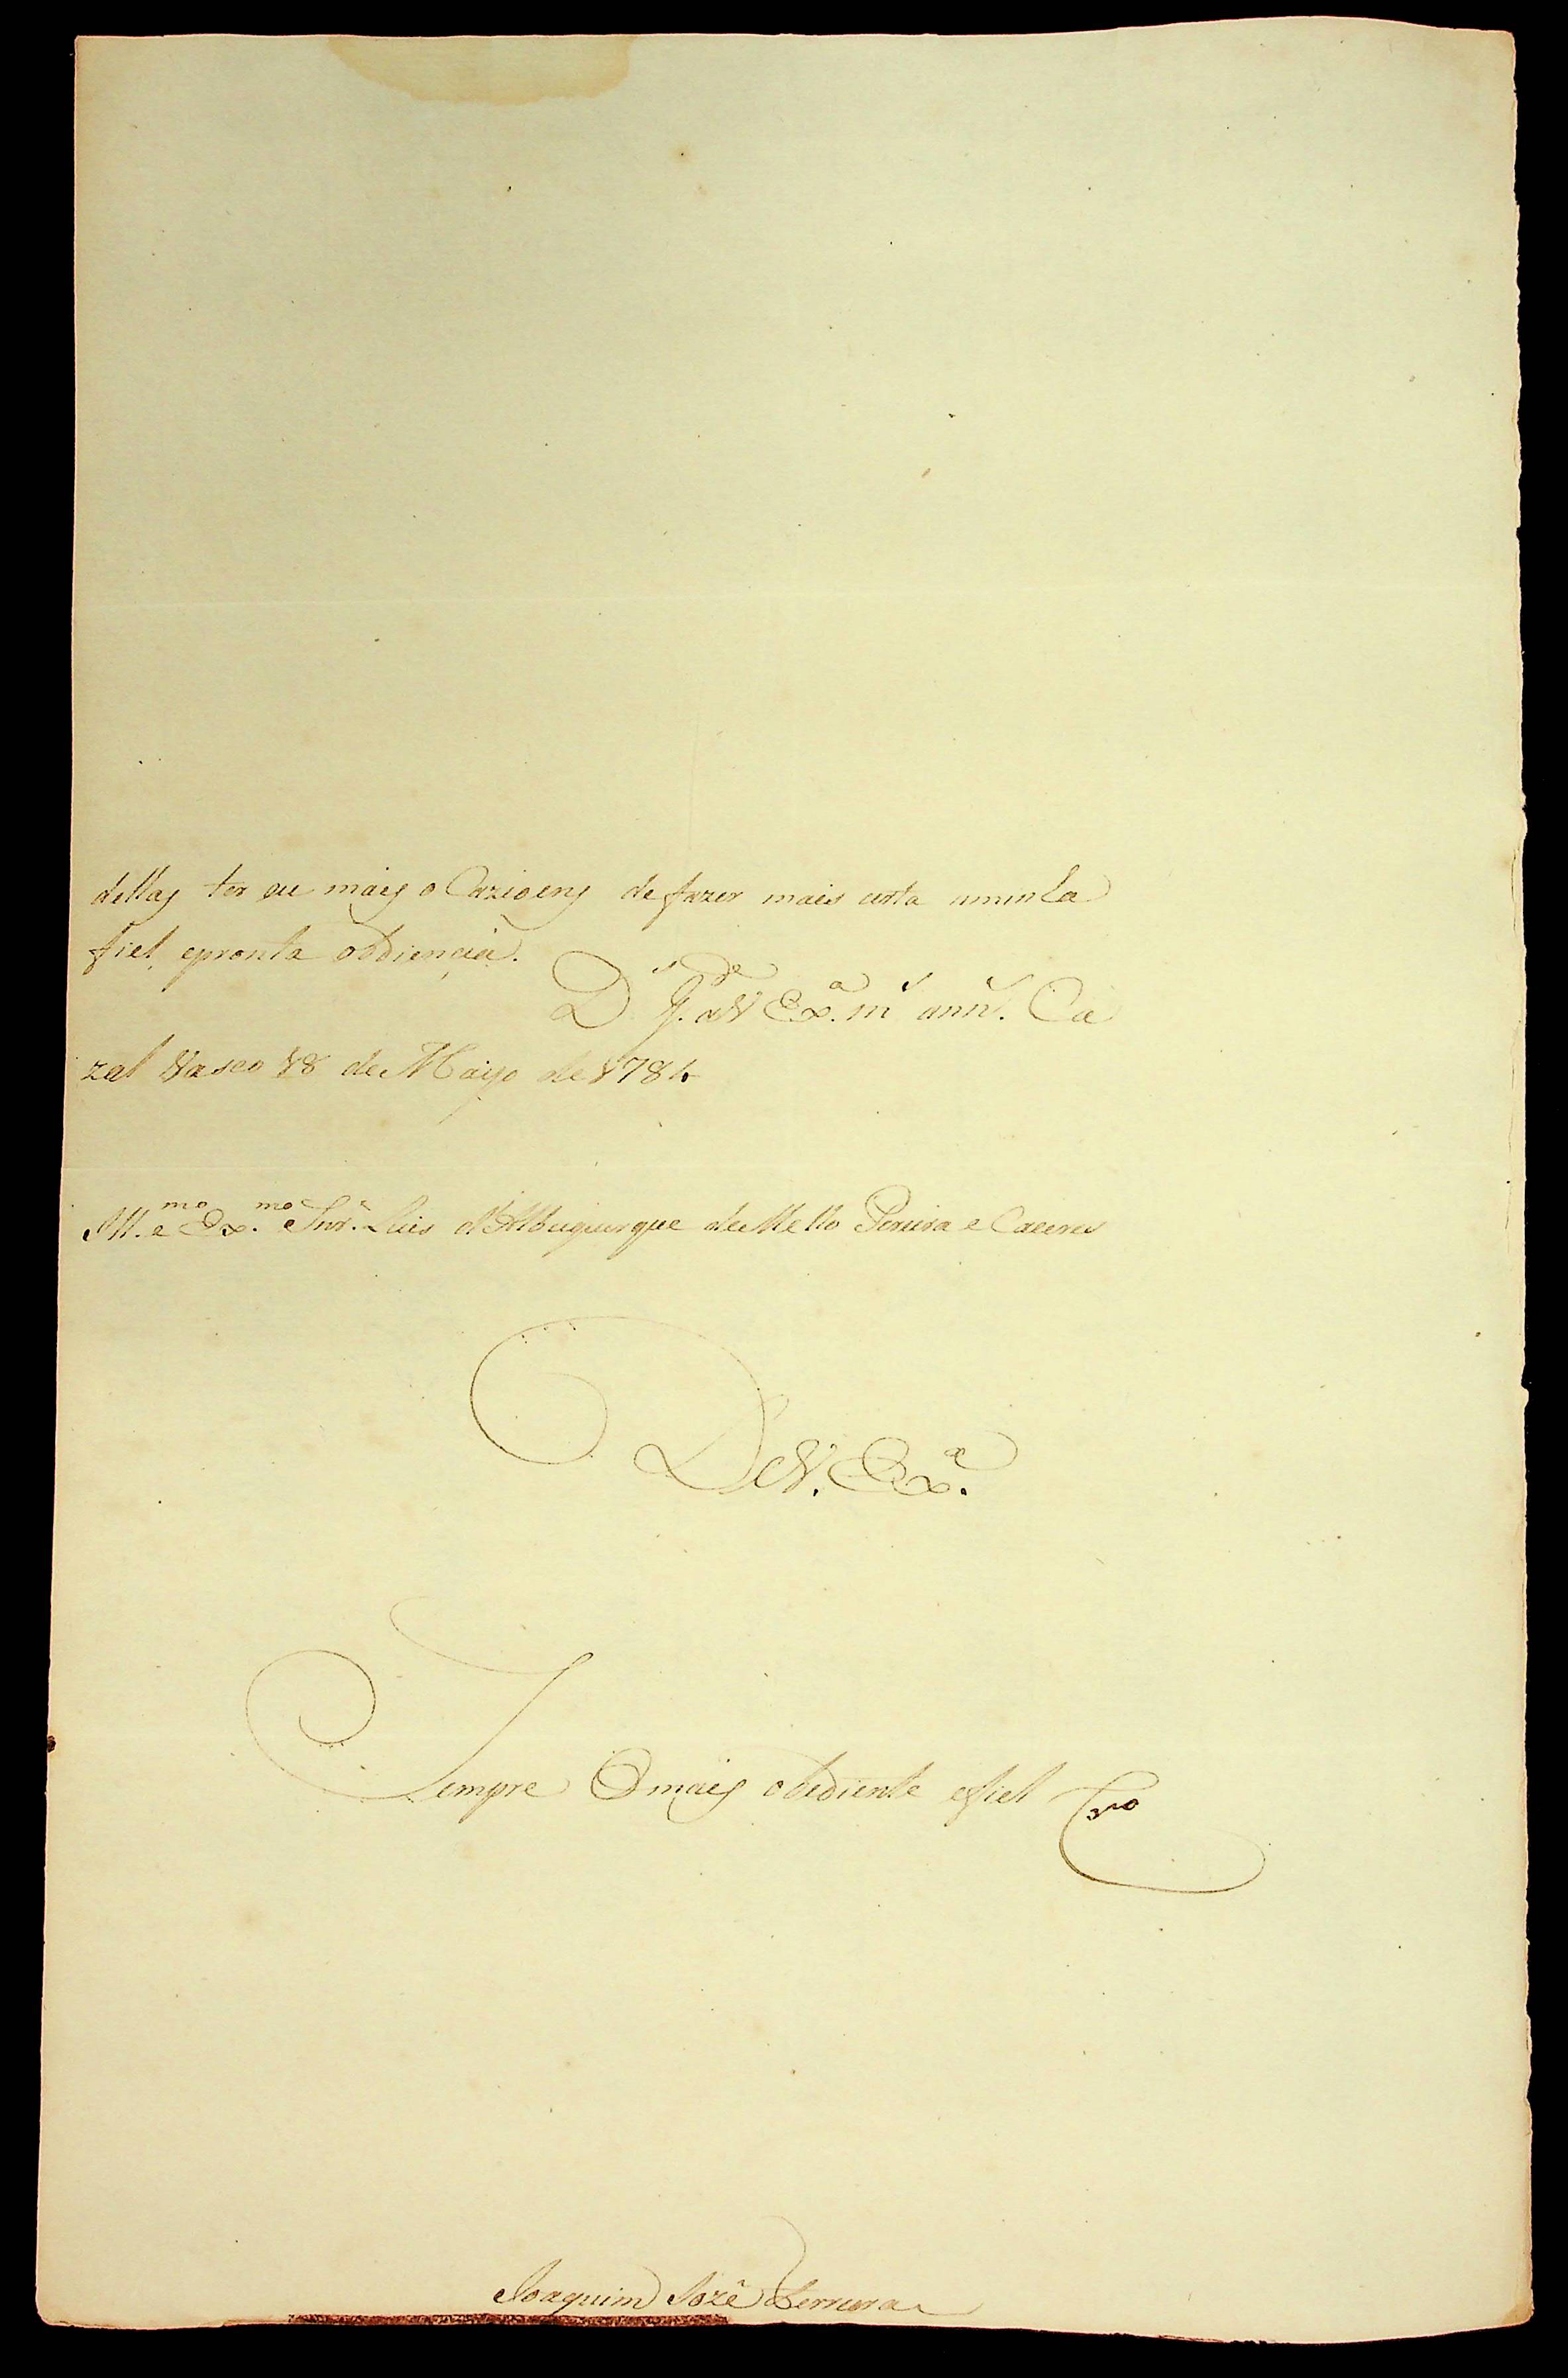 dellas ter eu mais o Cazioens de fazer mais certa aminha
fiel, epronta obdiencia.
D.s g.de a V Ex.a m.s ann.s. Ca
zal Vasco 18 de Mayo de 1784
Ill.mo e Ex.mo Snr. Luis d'Albuquerque de Mello Pereira e Caceres
De V. Ex.a
Sempre O mais obediente efiel C.do
Joaquim Jozé Ferreira